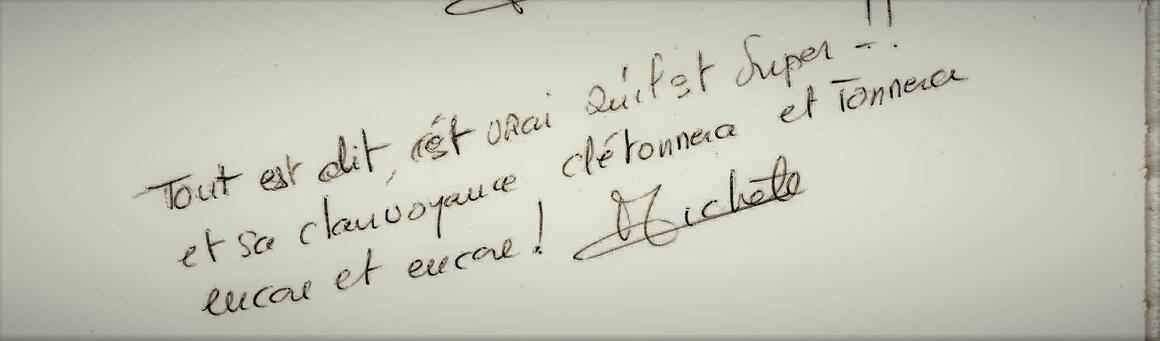 Tout est dit, c'est vrai qu'il est Super - !!
et sa clairvoyance détonnera et Tonnera
encore et encore !
Michèle